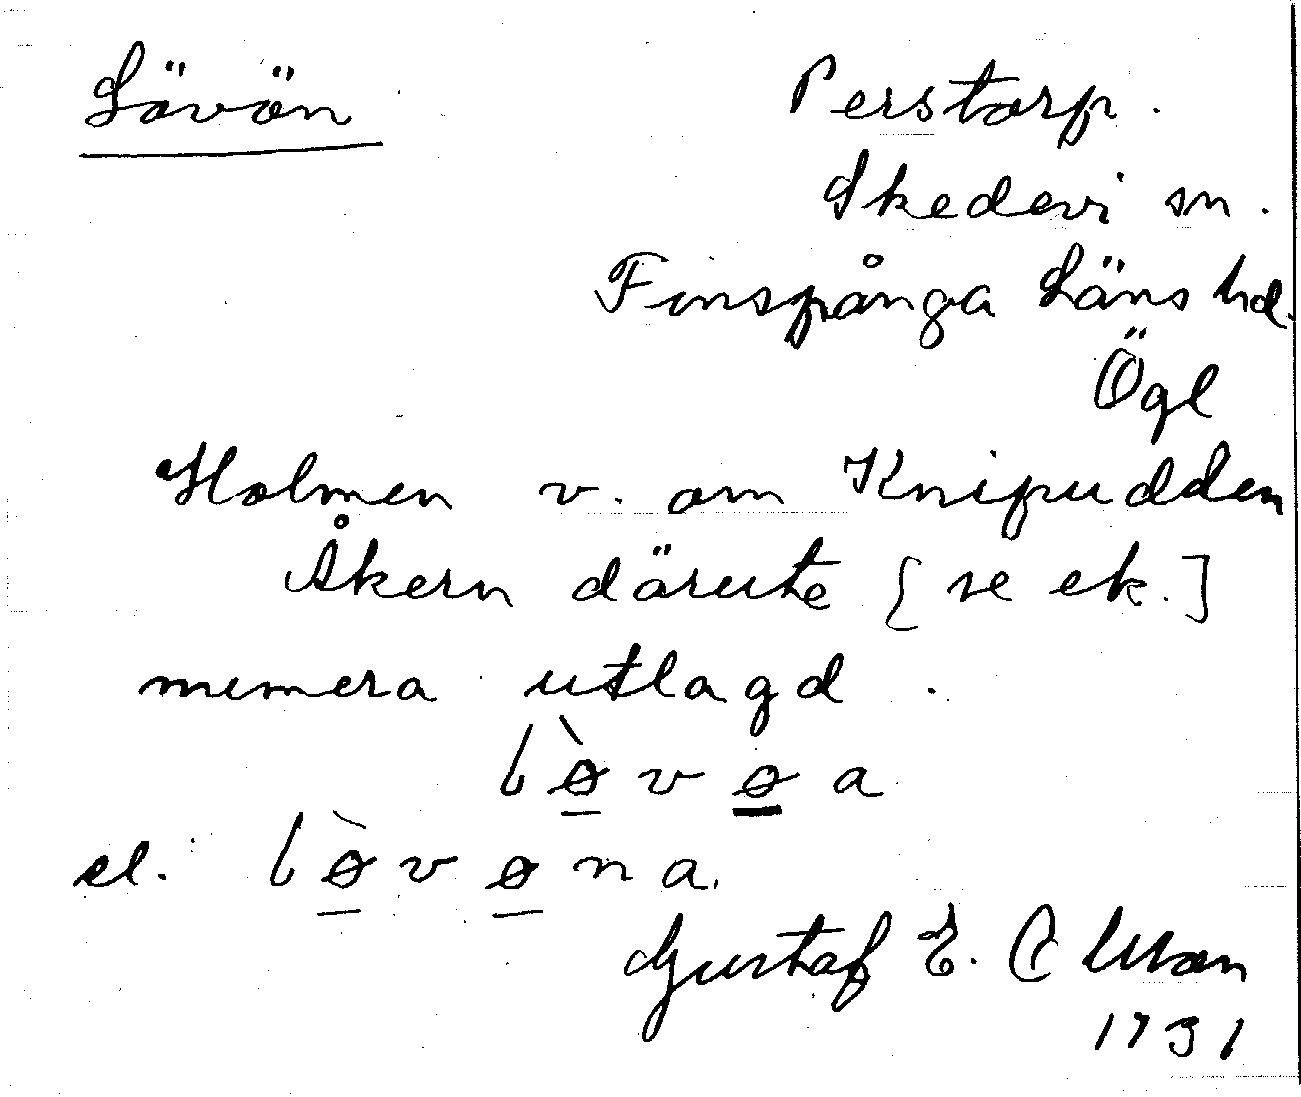 Lövön
Perstorp.
Skedevi sn.
Finspånga Läns hd.
Ögl
Holmen v. om Knipudden
Åkern därute [se ek.]
numera utlagd.
lø̀vøa
el. lø̀vøna.
Gustaf E. Olsson
1931